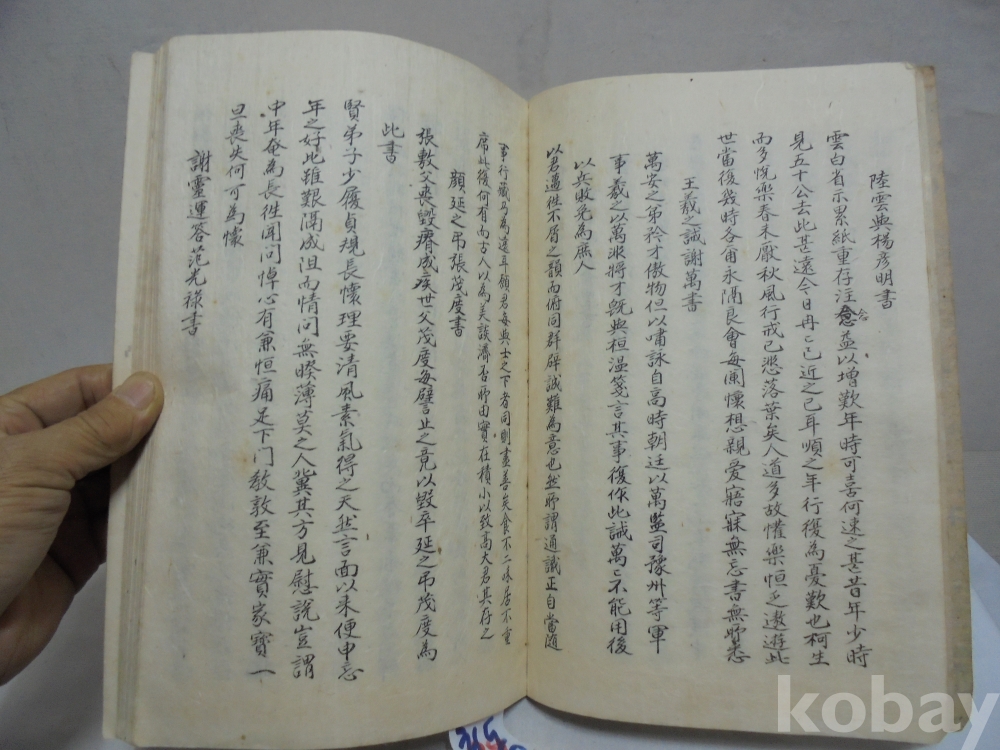 陸雲與楊彦明書
雲白省示累紙重存往念益以增歎年時可喜何速之甚昔年少時
見五十公去此甚遠今日冉〻已近之已耳順之年行復為憂歎也柯生
而多悅樂春未厭秋風行戒已悲落葉矣人道多故懽樂恒乏遨遊此
世當復幾時各爾永隔良會每闌懷想親愛寤寐無忘書無所悉
王羲之誡謝萬書
萬安之弟矜才傲物但以嘯詠自高時朝廷以萬監司豫州等軍
事羲之以萬求將才旣與桓溫箋言其事後作此誡萬〻不能用後
以兵敗免為庶人
以君邁往不屑之韻而俯同群辟誠難為意也然所謂通識正自當隨
事行藏乃為遠耳願君每與士之下者同則盡善矣食不二味居不重
席此復何有而古人以為美談濟否所由實在積小以致高大君其存之
顏延之弔張茂度書
張敷父喪毀瘠成疾世父茂度每譬止之竟以毀卒延之弔茂度為
此書
賢弟子少履貞規長懷理要清風素氣得之天然言面以來便申忘
年之好比雖艱隔成阻而情問無暌薄莫之人冀其方見慰說豈謂
中年奄為長往聞問悼心有兼恒痛足下門敎敦至兼實家寶一
旦喪失何可為懷
謝靈運答范光祿書
念
kobay